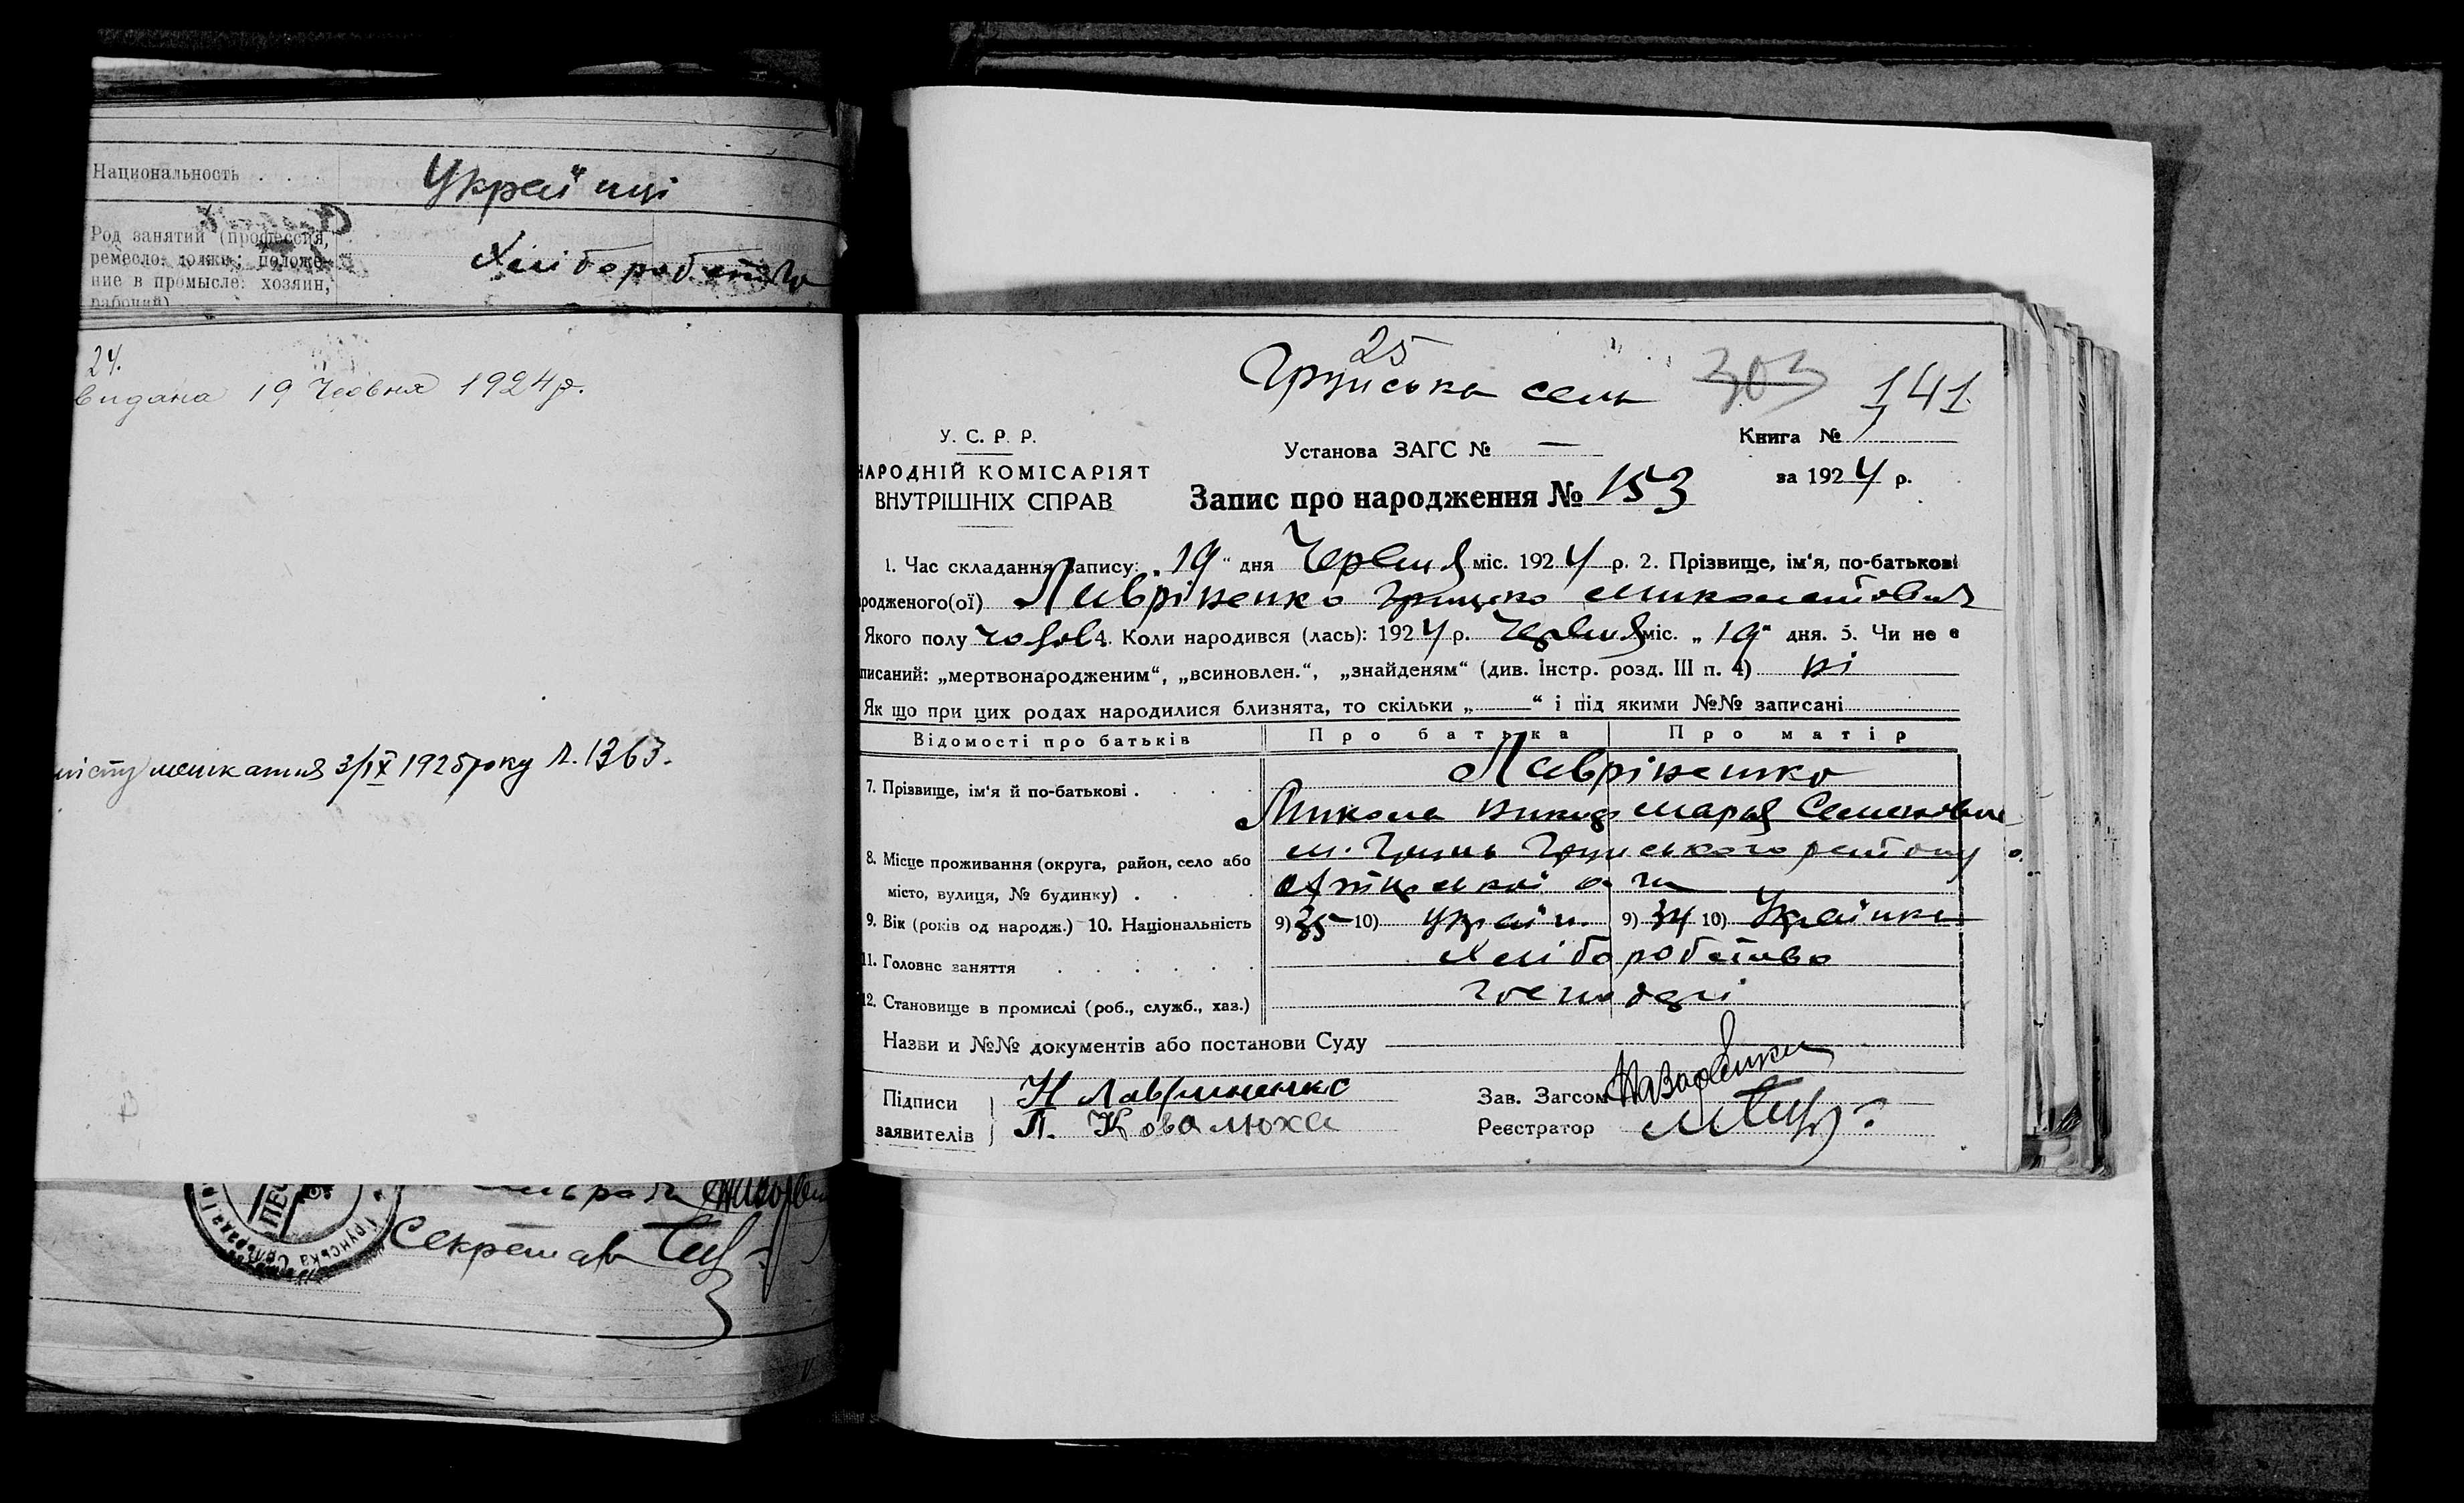 Национальность . . . Україпці
Род занятий (профессия,
ремесло: должн; положе-
ние в промысле: хозяин,
рабочий)
Хліборобство
24.
видана 19 Червня 1924 р.
місту мешкання 3/IX 1925 року Л. 1363.
Секретарь
25
Грунська сель 303 141
У. С. Р. Р.
НАРОДНІЙ КОМІСАРІЯТ
ВНУТРІШНІХ СПРАВ
Установа ЗАГС № —
Книга № 1
за 1924 р.
Запис про народження № 153
1. Час складання запису: „19“ дня Червня міс. 1924 р. 2. Прізвище, ім'я, по-батькові
родженого(ої) Лавріненко Грицько Миколаєвич
Якого полу чолов 4. Коли народився (лась): 1924 р. Червня міс. „19“ дня. 5. Чи не є
писаний: „мертвонародженим“, „всиновлен.“, „знайденям“ (див. Інстр. розд. III п. 4) ні
Як що при цих родах народилися близнята, то скільки „—“ і під якими №№ записані
Відомості про батьків Про батька Про матір
7. Прізвище, ім'я й по-батькові . Лавріненко
Микола Марія Семеновна
8. Місце проживання (округа, район, село або
місто, вулиця, № будинку) .
м. Грунь Грунського району
9. Вік (років од народж.) 10. Національність 9) 35 10) Україн. 9) 34 10) Українка
11. Головне заняття Хліборобство
12. Становище в промислі (роб., служб., хаз.) господарі
Назви и №№ документів або постанови Суду
Підписи Н Лавриненко
заявителів П. Ковалюха
Зав. Загсом
Реєстратор